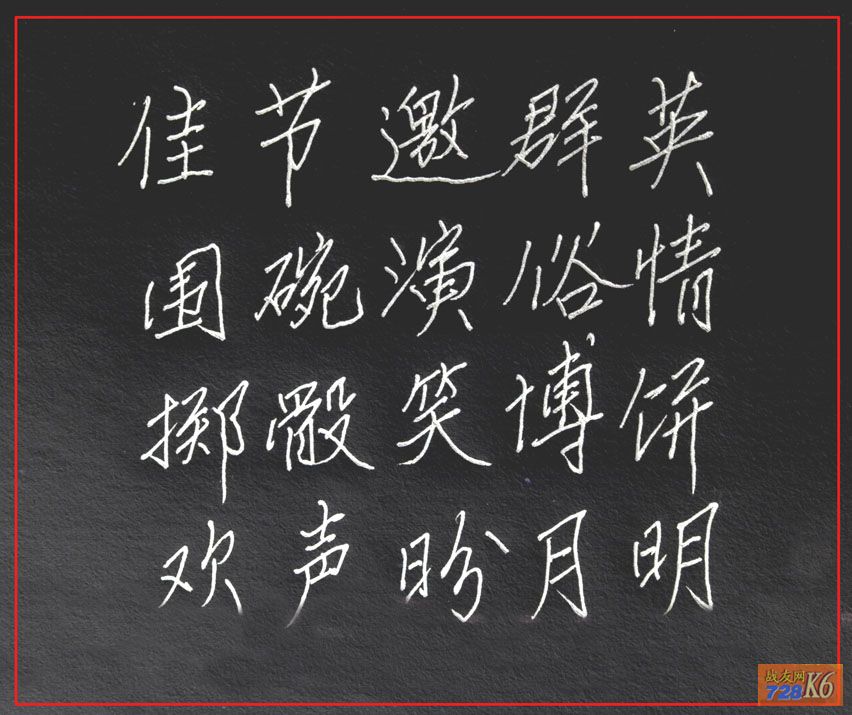 佳节邀群英
围碗演俗情
掷骰笑博饼
欢声昐月明
战友网
728K6